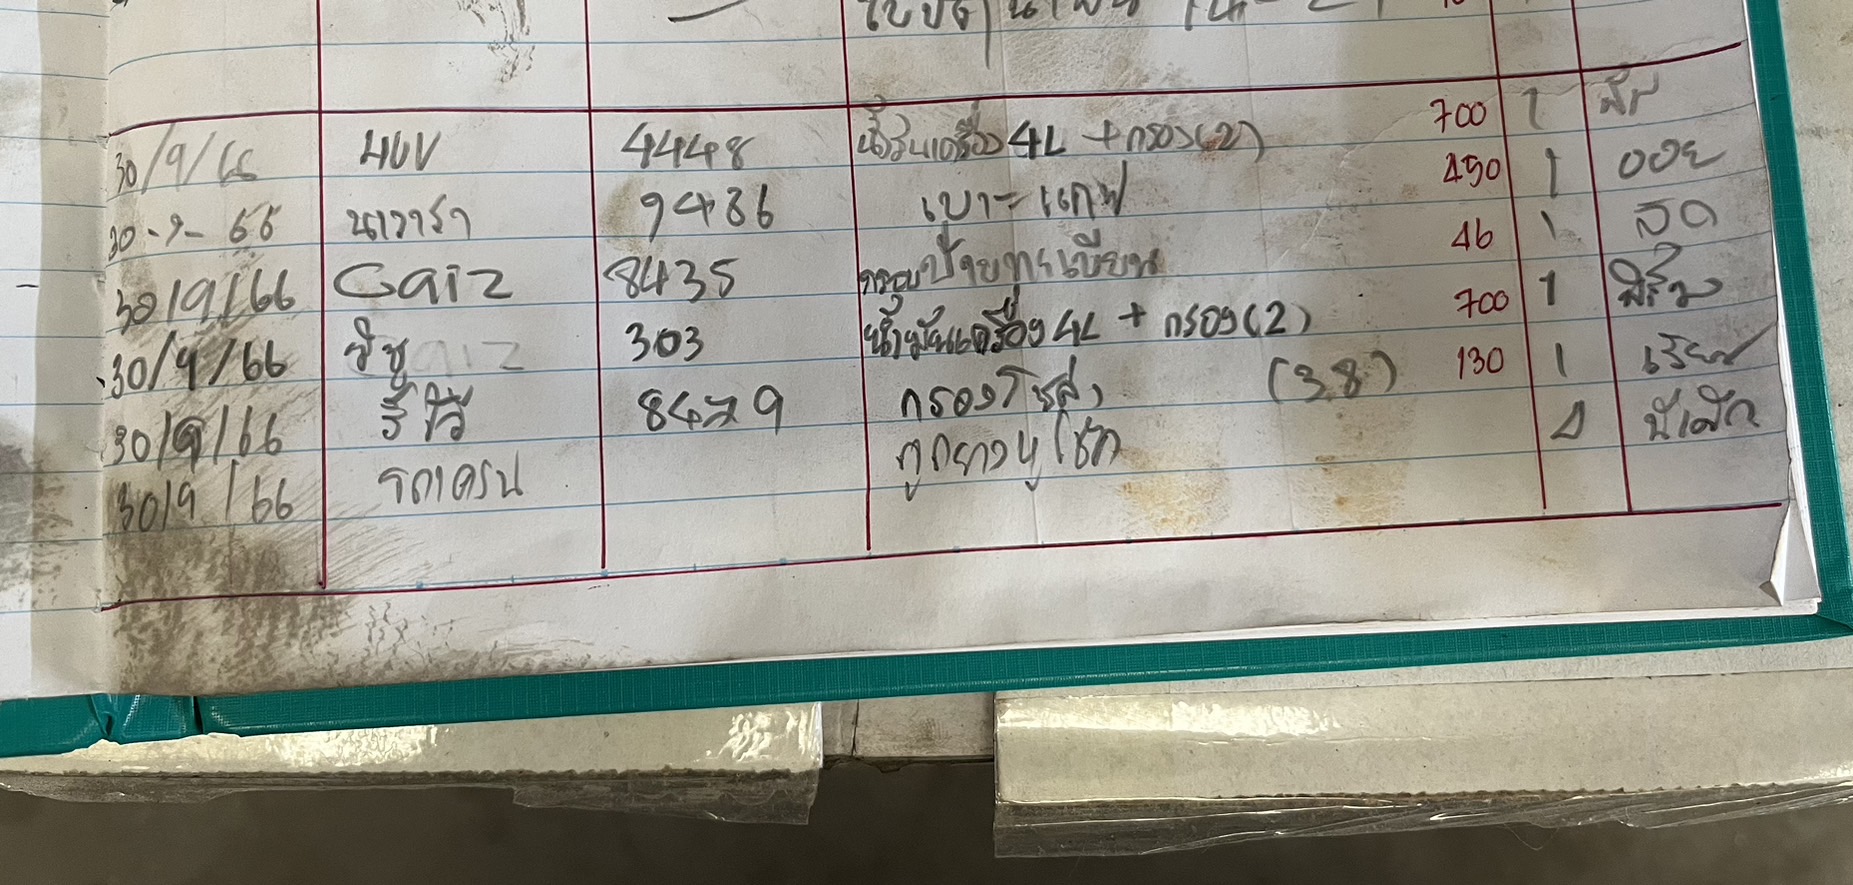 30/9/66 4UV 4448 น้ำมันเครื่อง 4L + กรอง(2) 700 1
30-9-66 นาวารา 9486 เบาะแคป 450 1 ออย
30/9/66 Caiz 8435 กรอบป้ายทะเบียน 46 1 สด
30/9/66 วีซู 303 น้ำมันเครื่อง 4L + กรอง(2) 700 1
30/9/66 รีโว้ 8479 กรองโซล่า (38) 130 1
30/9/66 รถเครน ลูกยางหูโช้ค 4